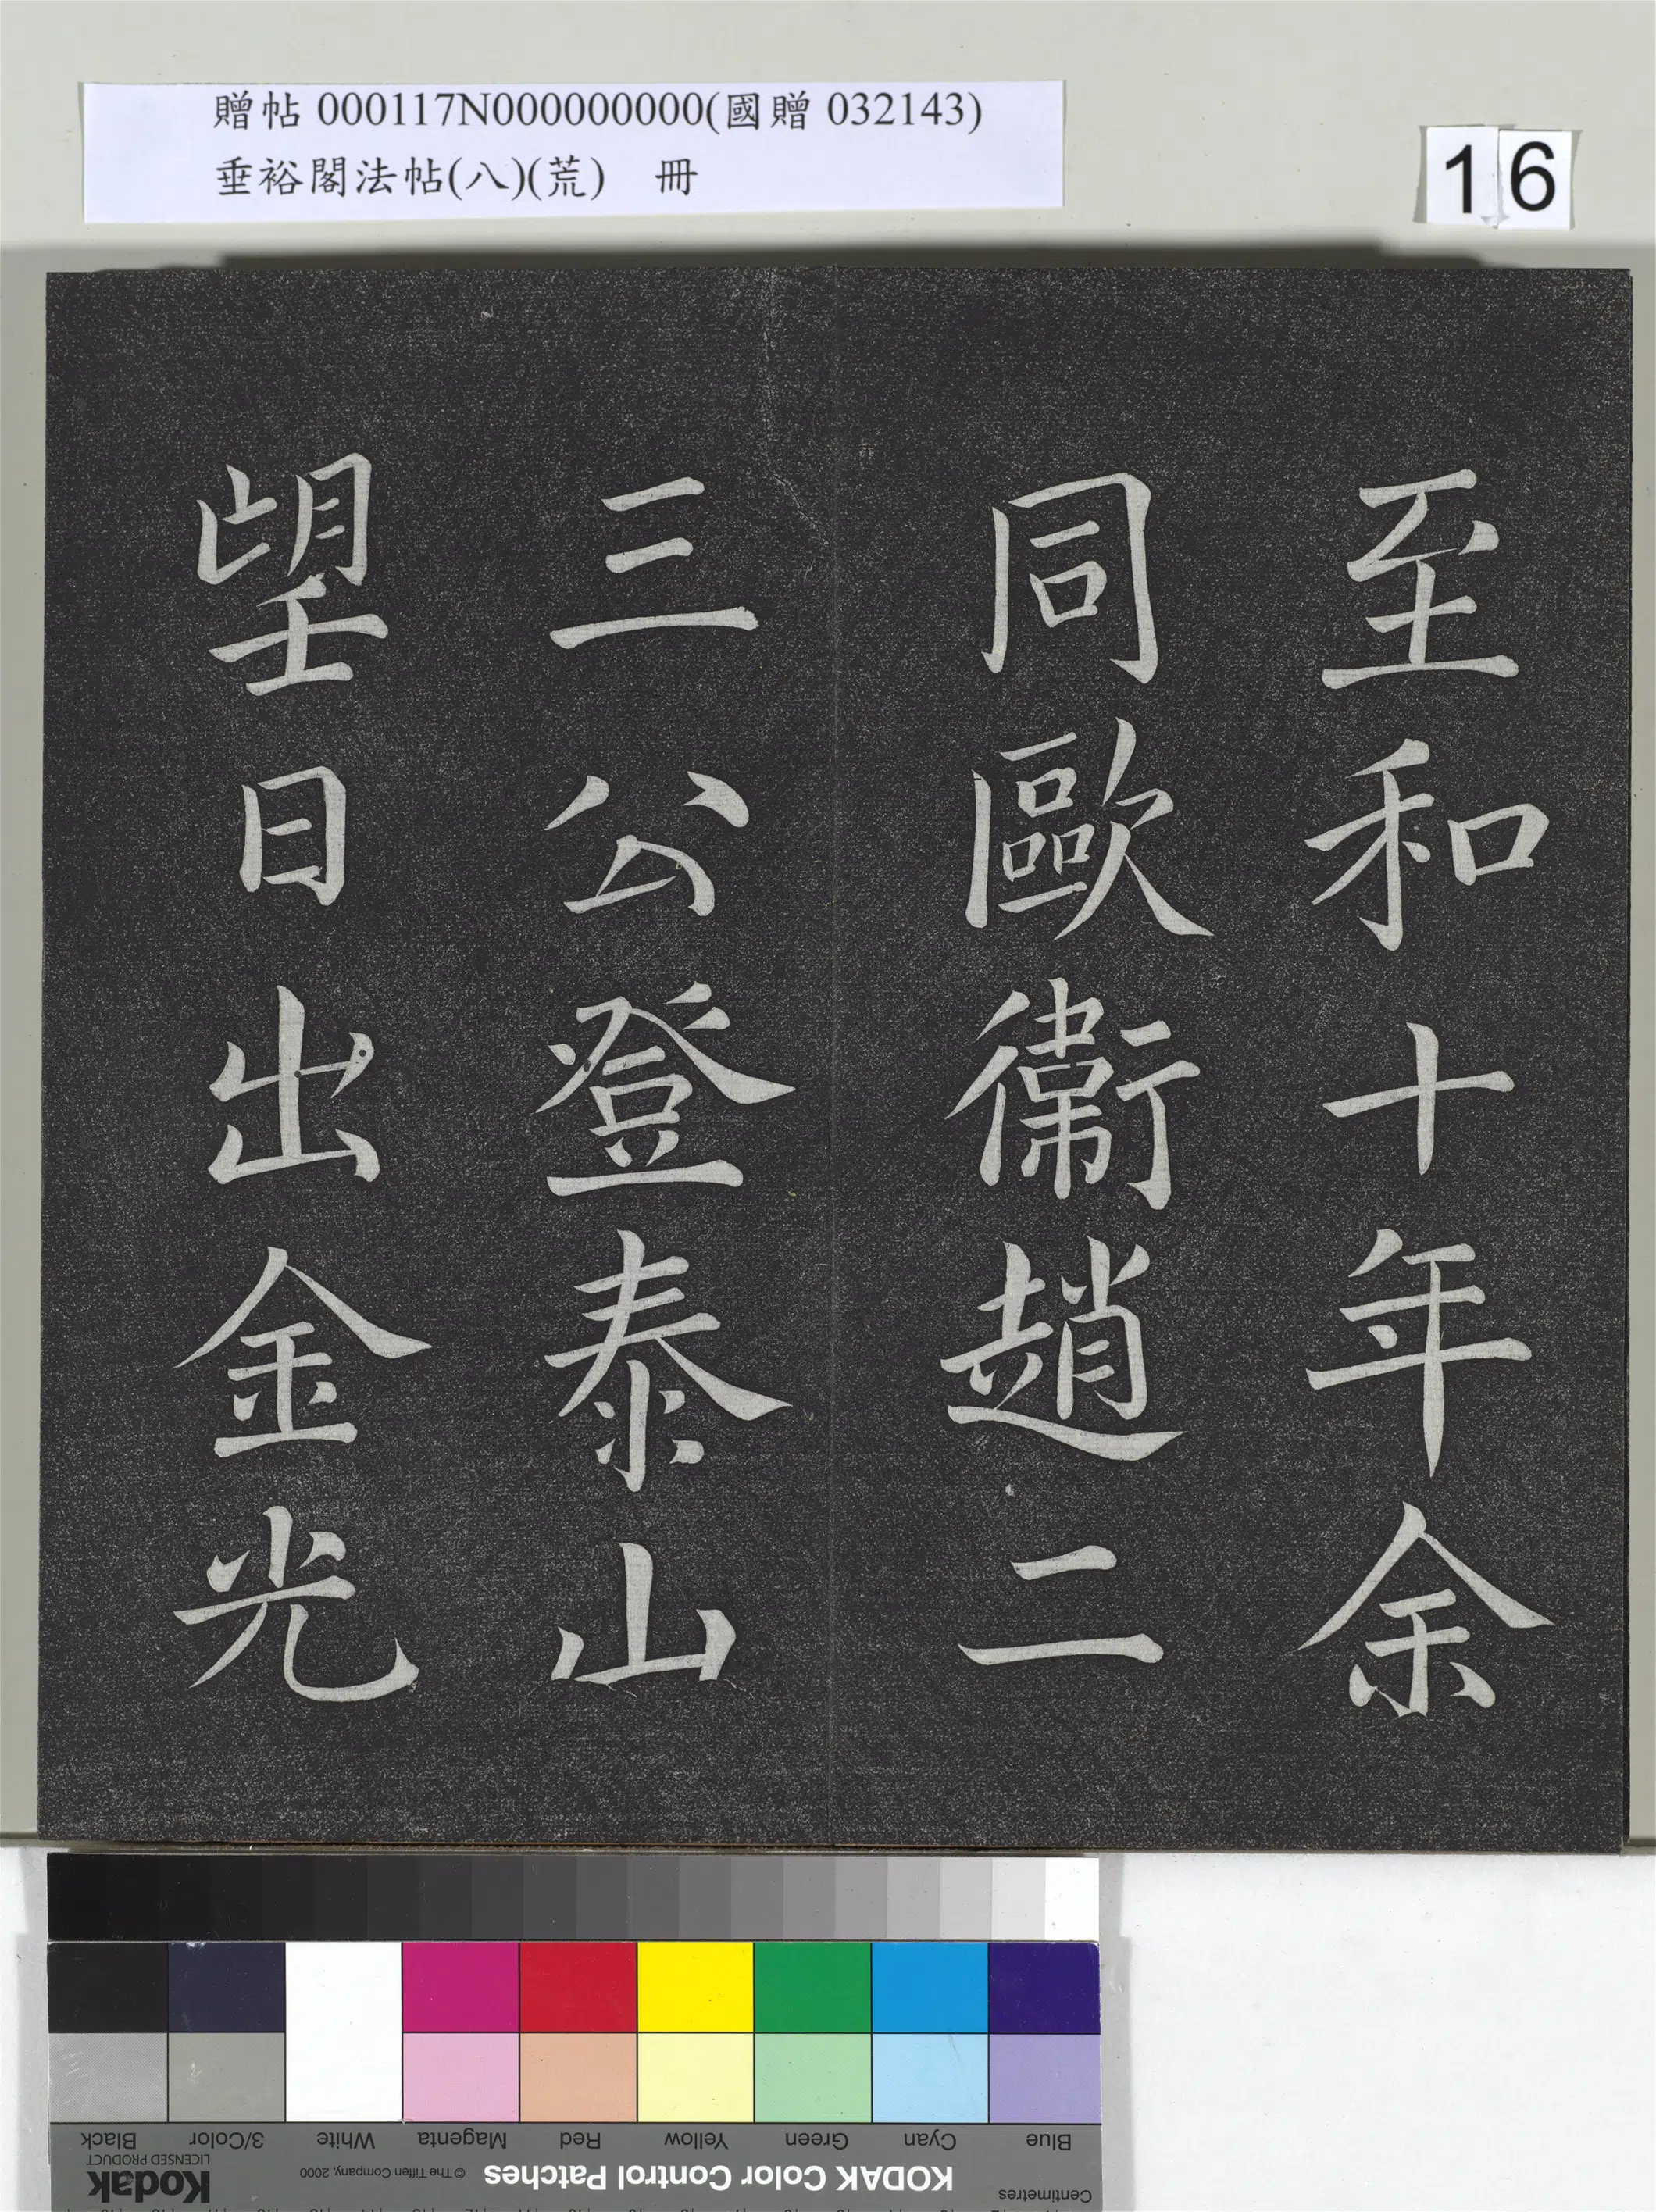 贈帖 000117N000000000(國贈 032143)
垂裕閣法帖(八)(荒) 冊
16
至和十年余
同歐衛趙二
三公登泰山
望日出金光
Blue Cyan Green Yellow Red Magenta White 3/Color Black
Centimetres KODAK Color Control Patches © The Tiffen Company, 2000 Kodak
LICENSED PRODUCT